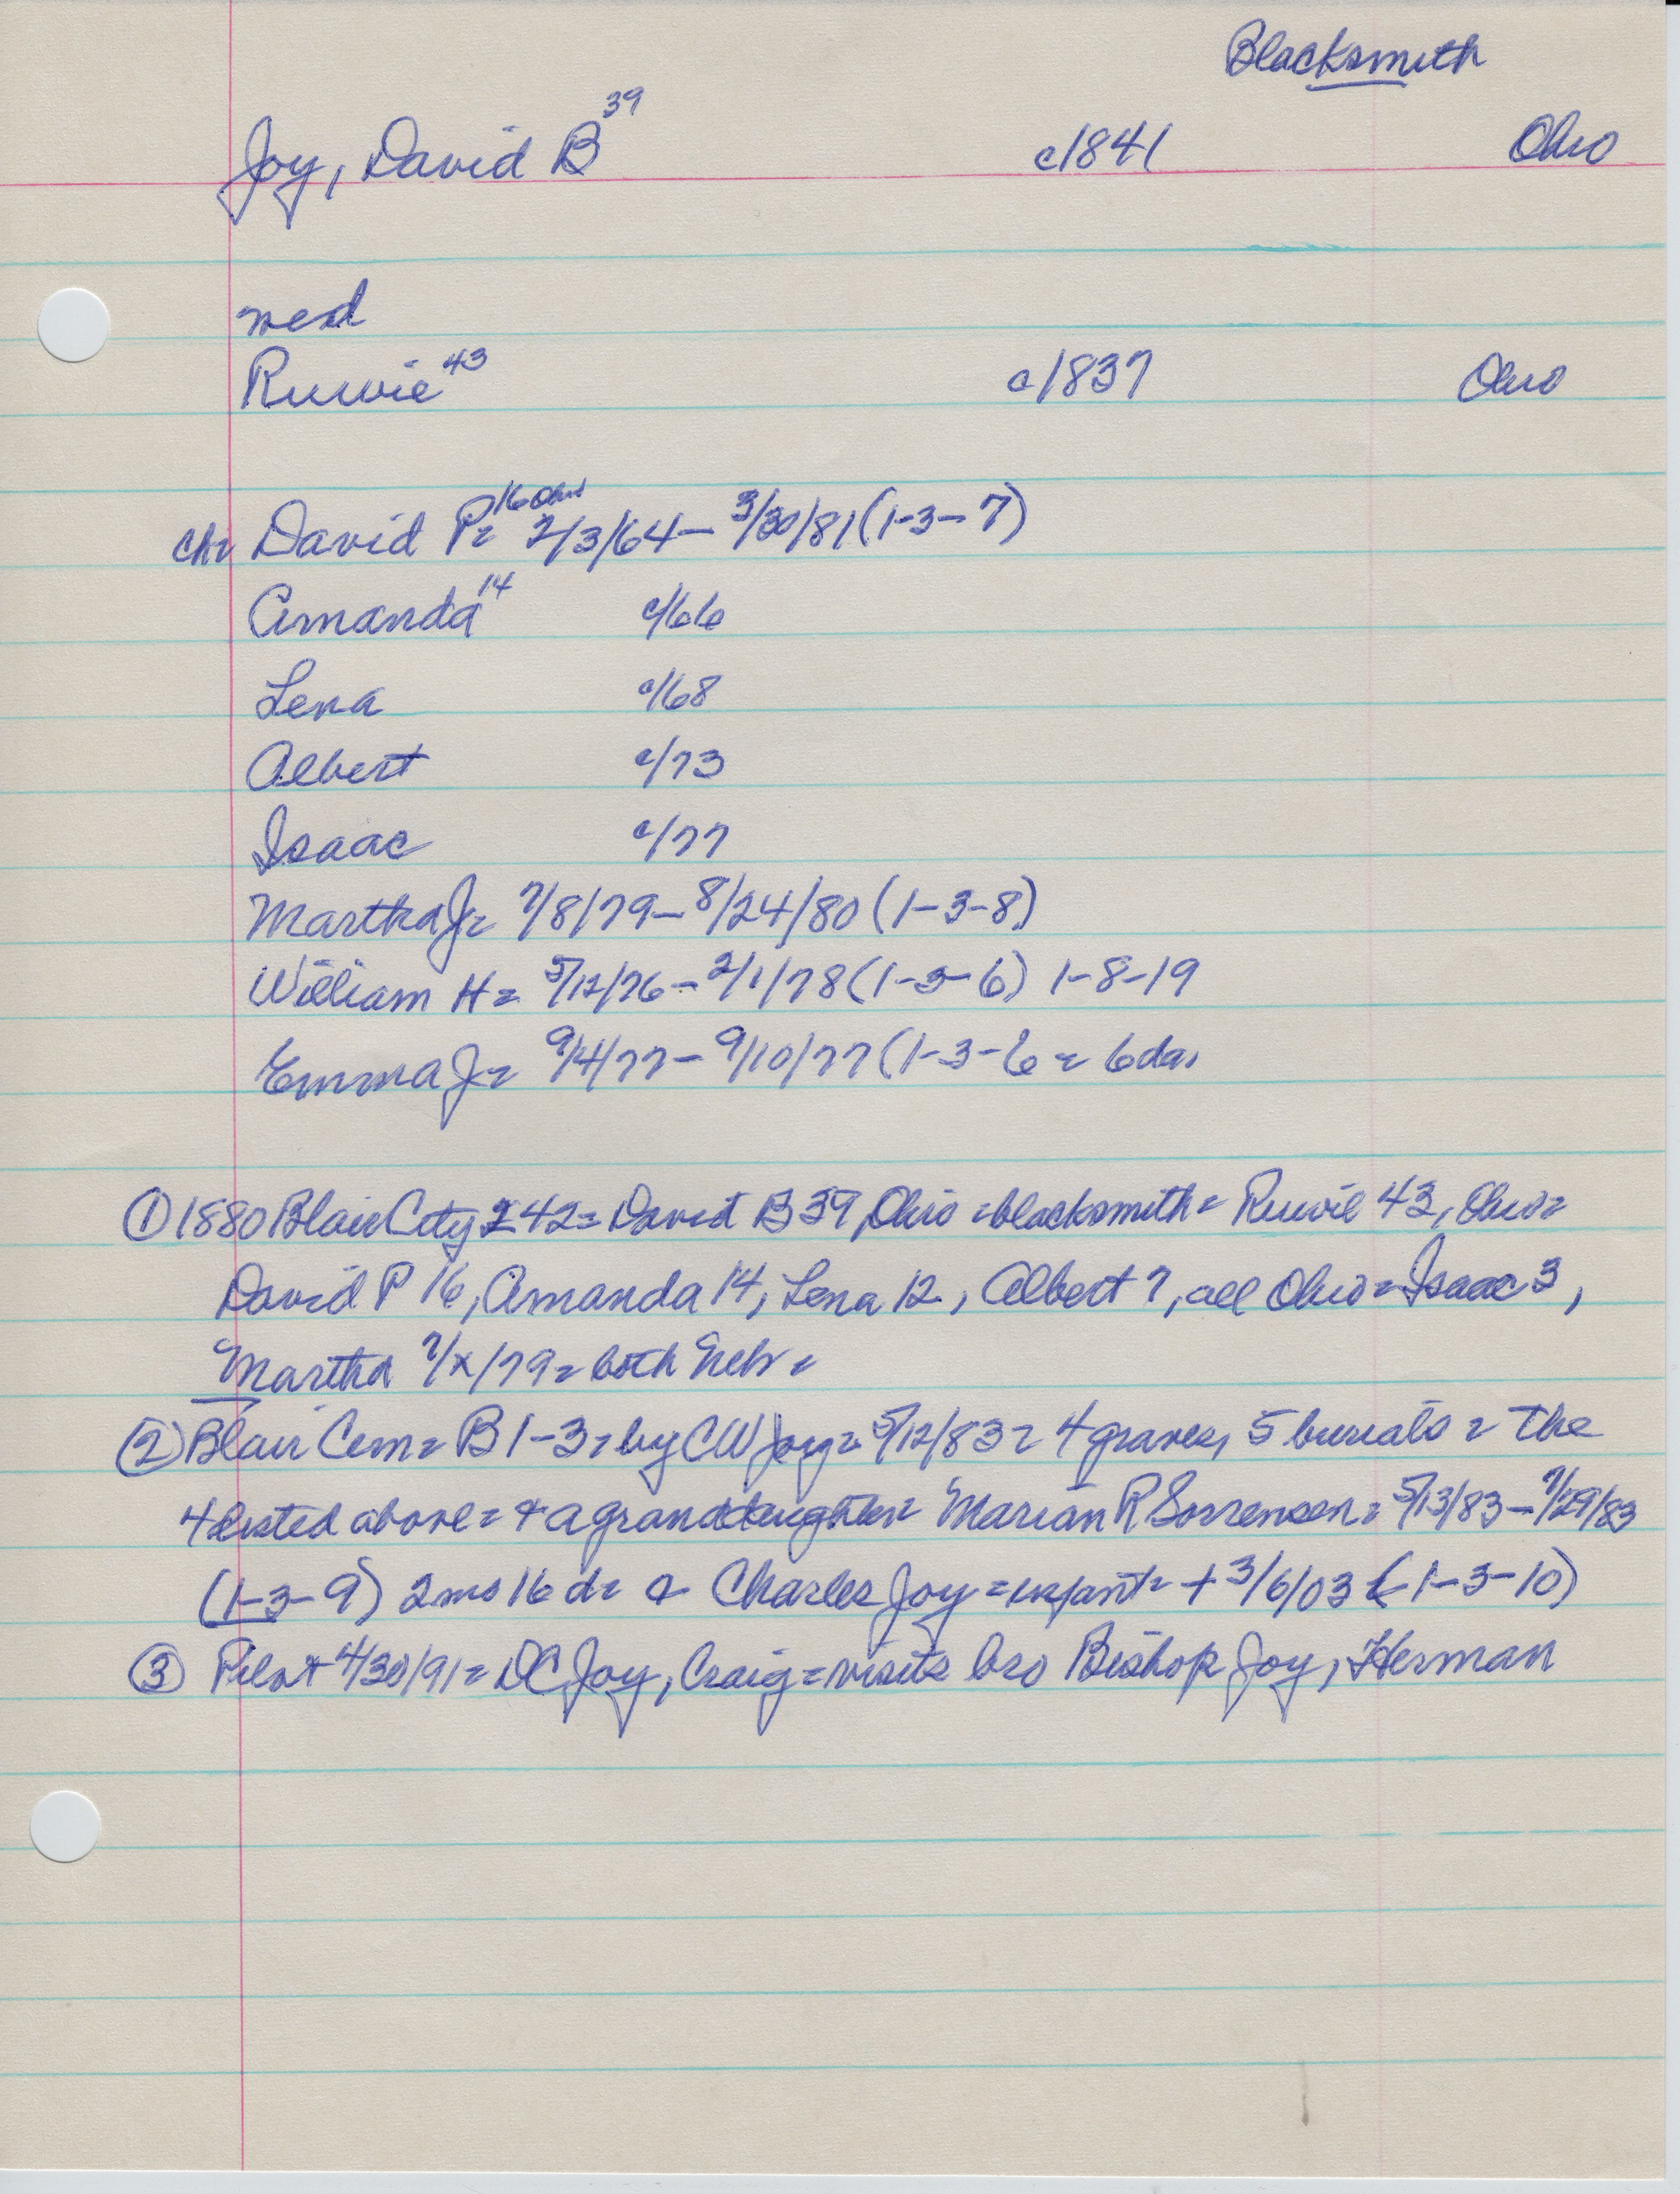 Blacksmith
Joy, David B 39 c1841 Ohio
med
Ruvie 43 c1837 Ohio
ch= David P= 16 Ohio 2/3/64 - 3/30/81 (1-3-7)
Amanda 14 c/66
Lena c/68
Albert c/73
Isaac c/77
Martha J= 7/8/79 - 8/24/80 (1-3-8)
William H= 5/12/76 - 2/1/78 (1-3-6) 1-8-19
Emma J= 9/4/77 - 9/10/77 (1-3-6 = 6 da.
① 1880 Blair City 242= David B 39, Ohio =blacksmith= Ruvie 43, Ohio=
David P 16, Amanda 14, Lena 12, Albert 7, all Ohio= Isaac 3,
Martha 7/x/79= both Nebr=
② Blair Cem= B 1-3= by CW Joy= 5/12/83= 4 graves, 5 burials= The
4 listed above= + a granddaughter= Marian R Sorrensen= 5/13/83 - 7/29/83
(1-3-9) 2 mo 16 d= & Charles Joy =infant= + 3/6/03 (1-3-10)
③ Pilot 4/30/91= DC Joy, Craig=visits bro Bishop Joy, Herman